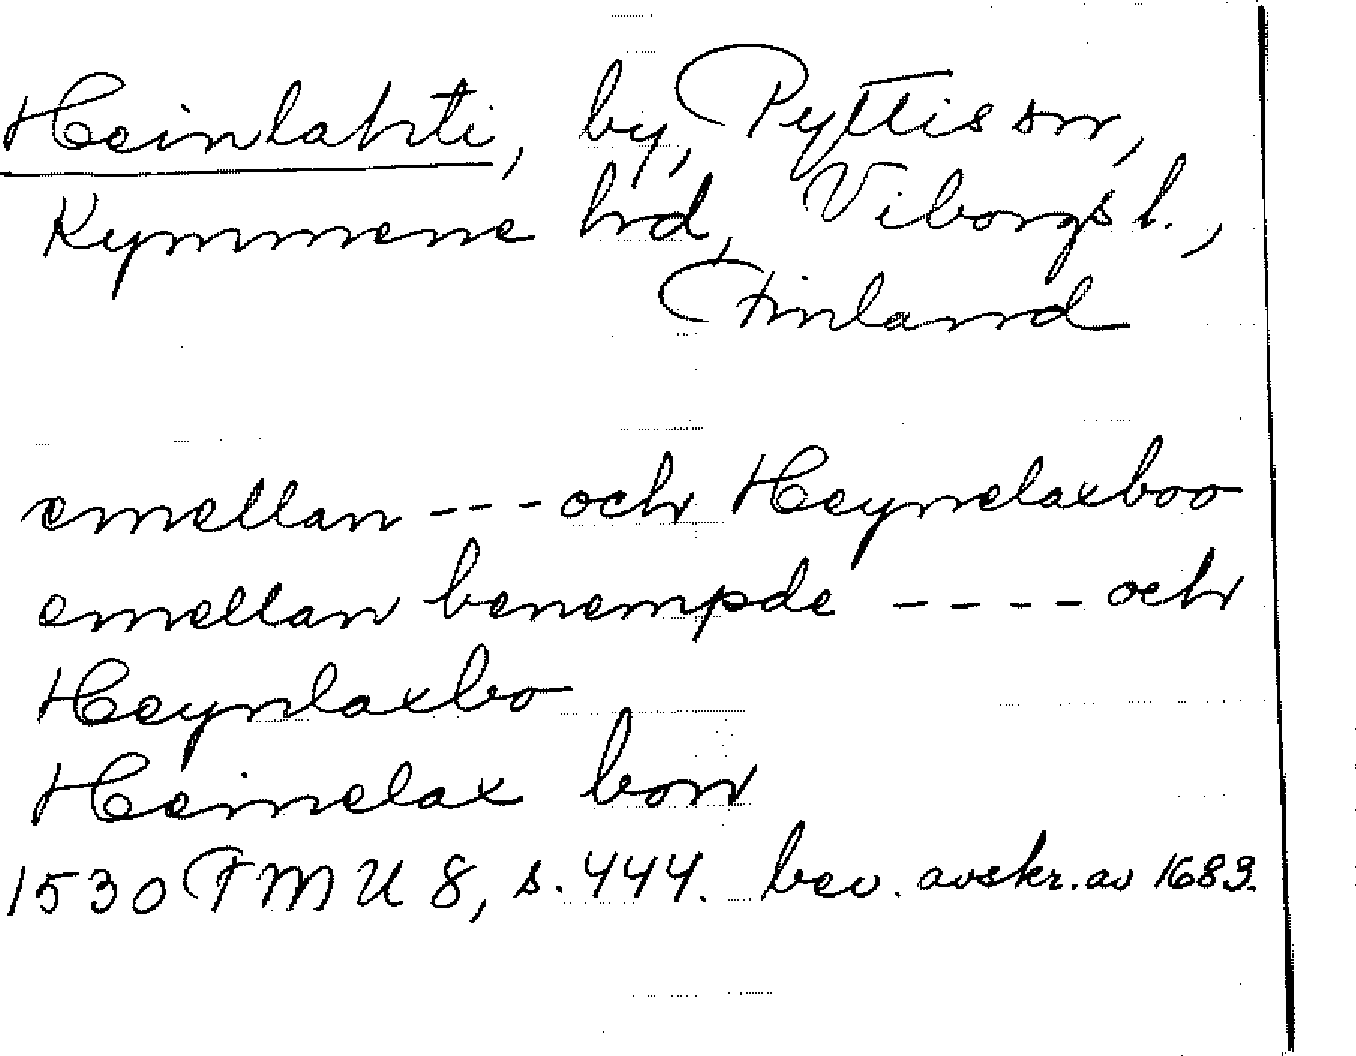 Heinlahti, by, Pyttis sn,
Kymmene hd, Viborgs l.,
Finland
emellan --- och Heynelaxboo
emellan benempde ---- och
Heynlaxbo
Heinelax bon
1530 FMU 8, s. 444. bev. avskr. av 1683.